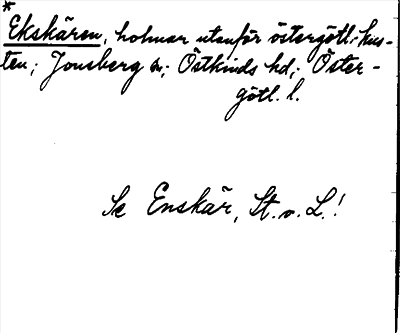 *
Ekskären, holmar utanför östergötl. kus-
ten; Jonsberg s.; Östkinds hd; Öster-
götl. l.
Se Enskär, St. o. L.!